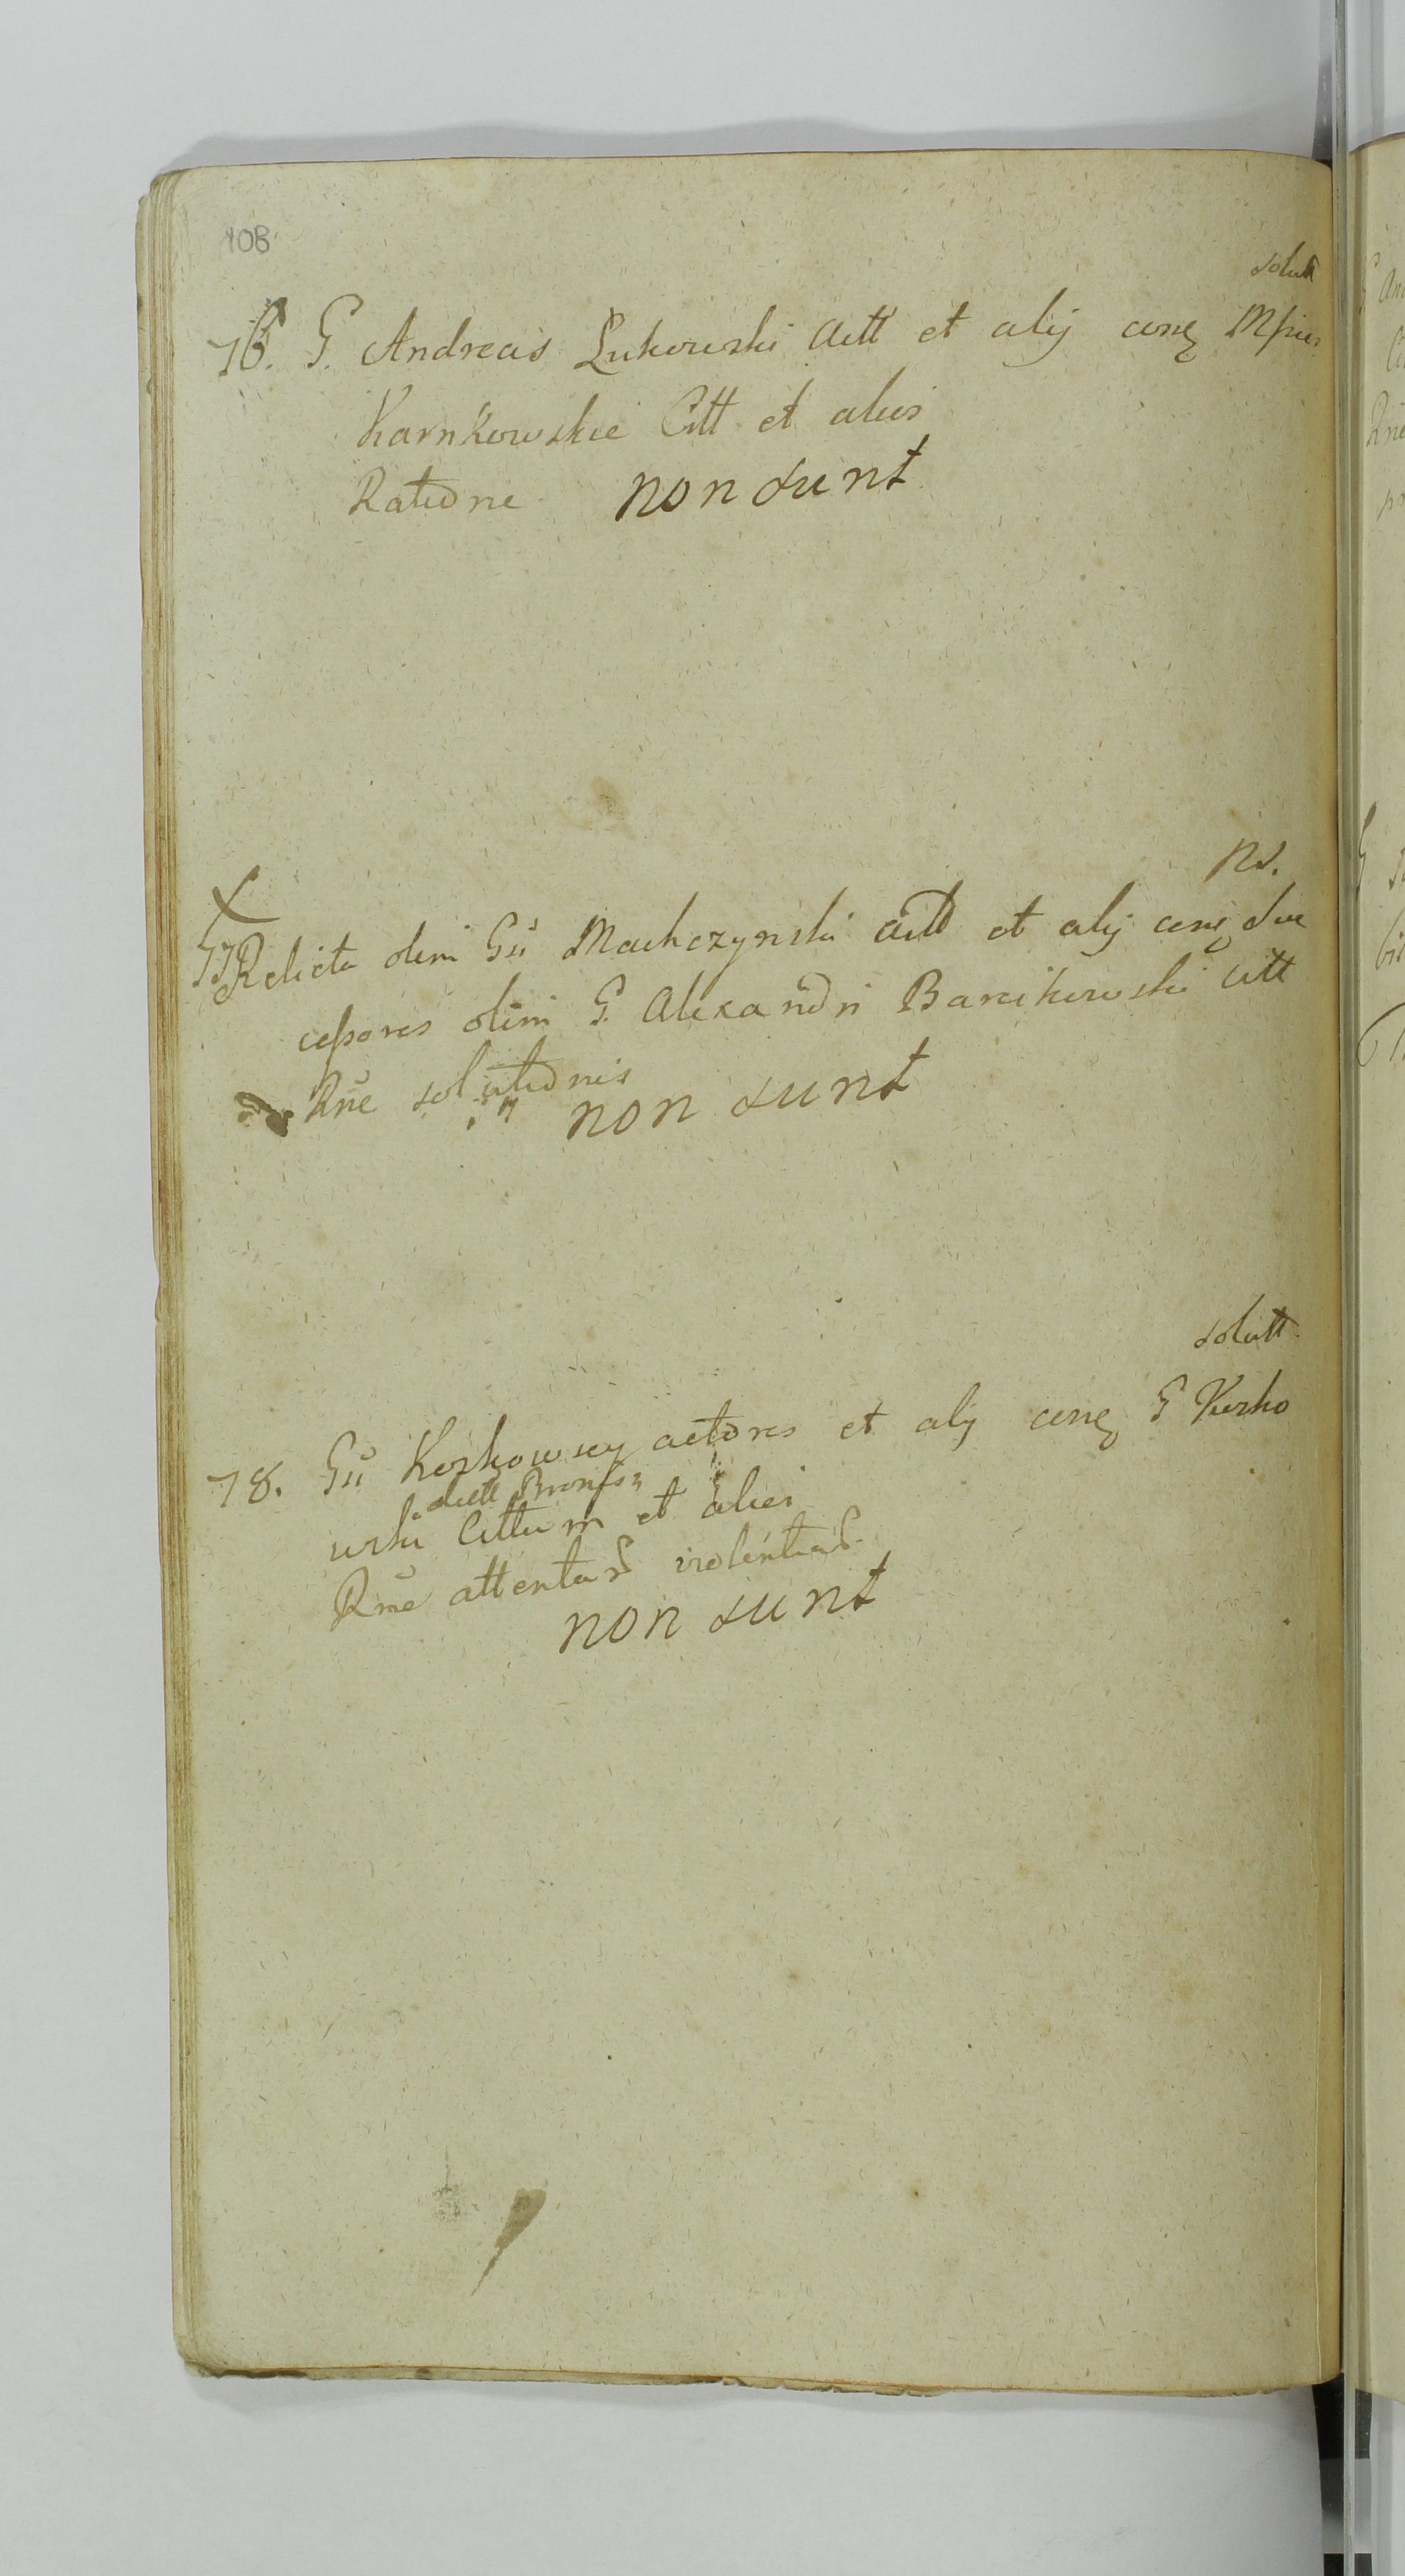 108
solutt
76. G. Andreas Łukowski Actt et alij conę Mfi
Karnkowskie Citt et alios
Ratione non sunt
ns.
77 Relicta olim Gii Machczynski Actt et alij conę Suc
cessores olim G. Alexandri Barcikowski Citt
Rne solutionis
non sunt
solutt
78. Gii Korkowscy actores et alij conę G Kurko
dictt
wski Cittum et alios
Rne attentas violentias
non sunt